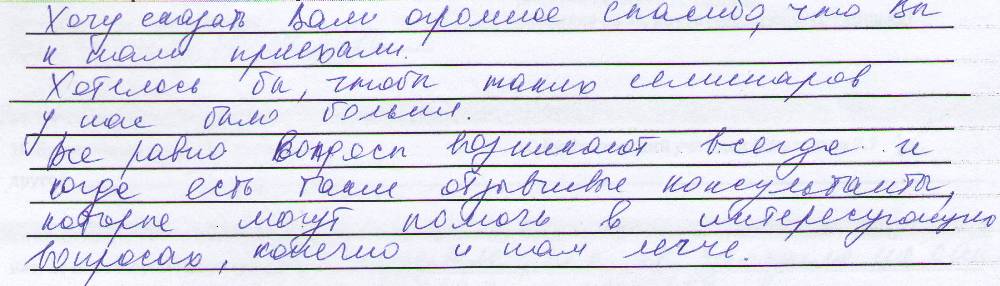 Хочу сказать Вами огромное спасибо, что Вы
к нами приехали.
Хотелось бы, чтобы таких семинаров
у нас было больше.
Все равно вопросы возникают всегда и
когда есть такие отзывчивые консультанты,
которые могут помочь в интересующих
вопросах, конечно и нам легче.